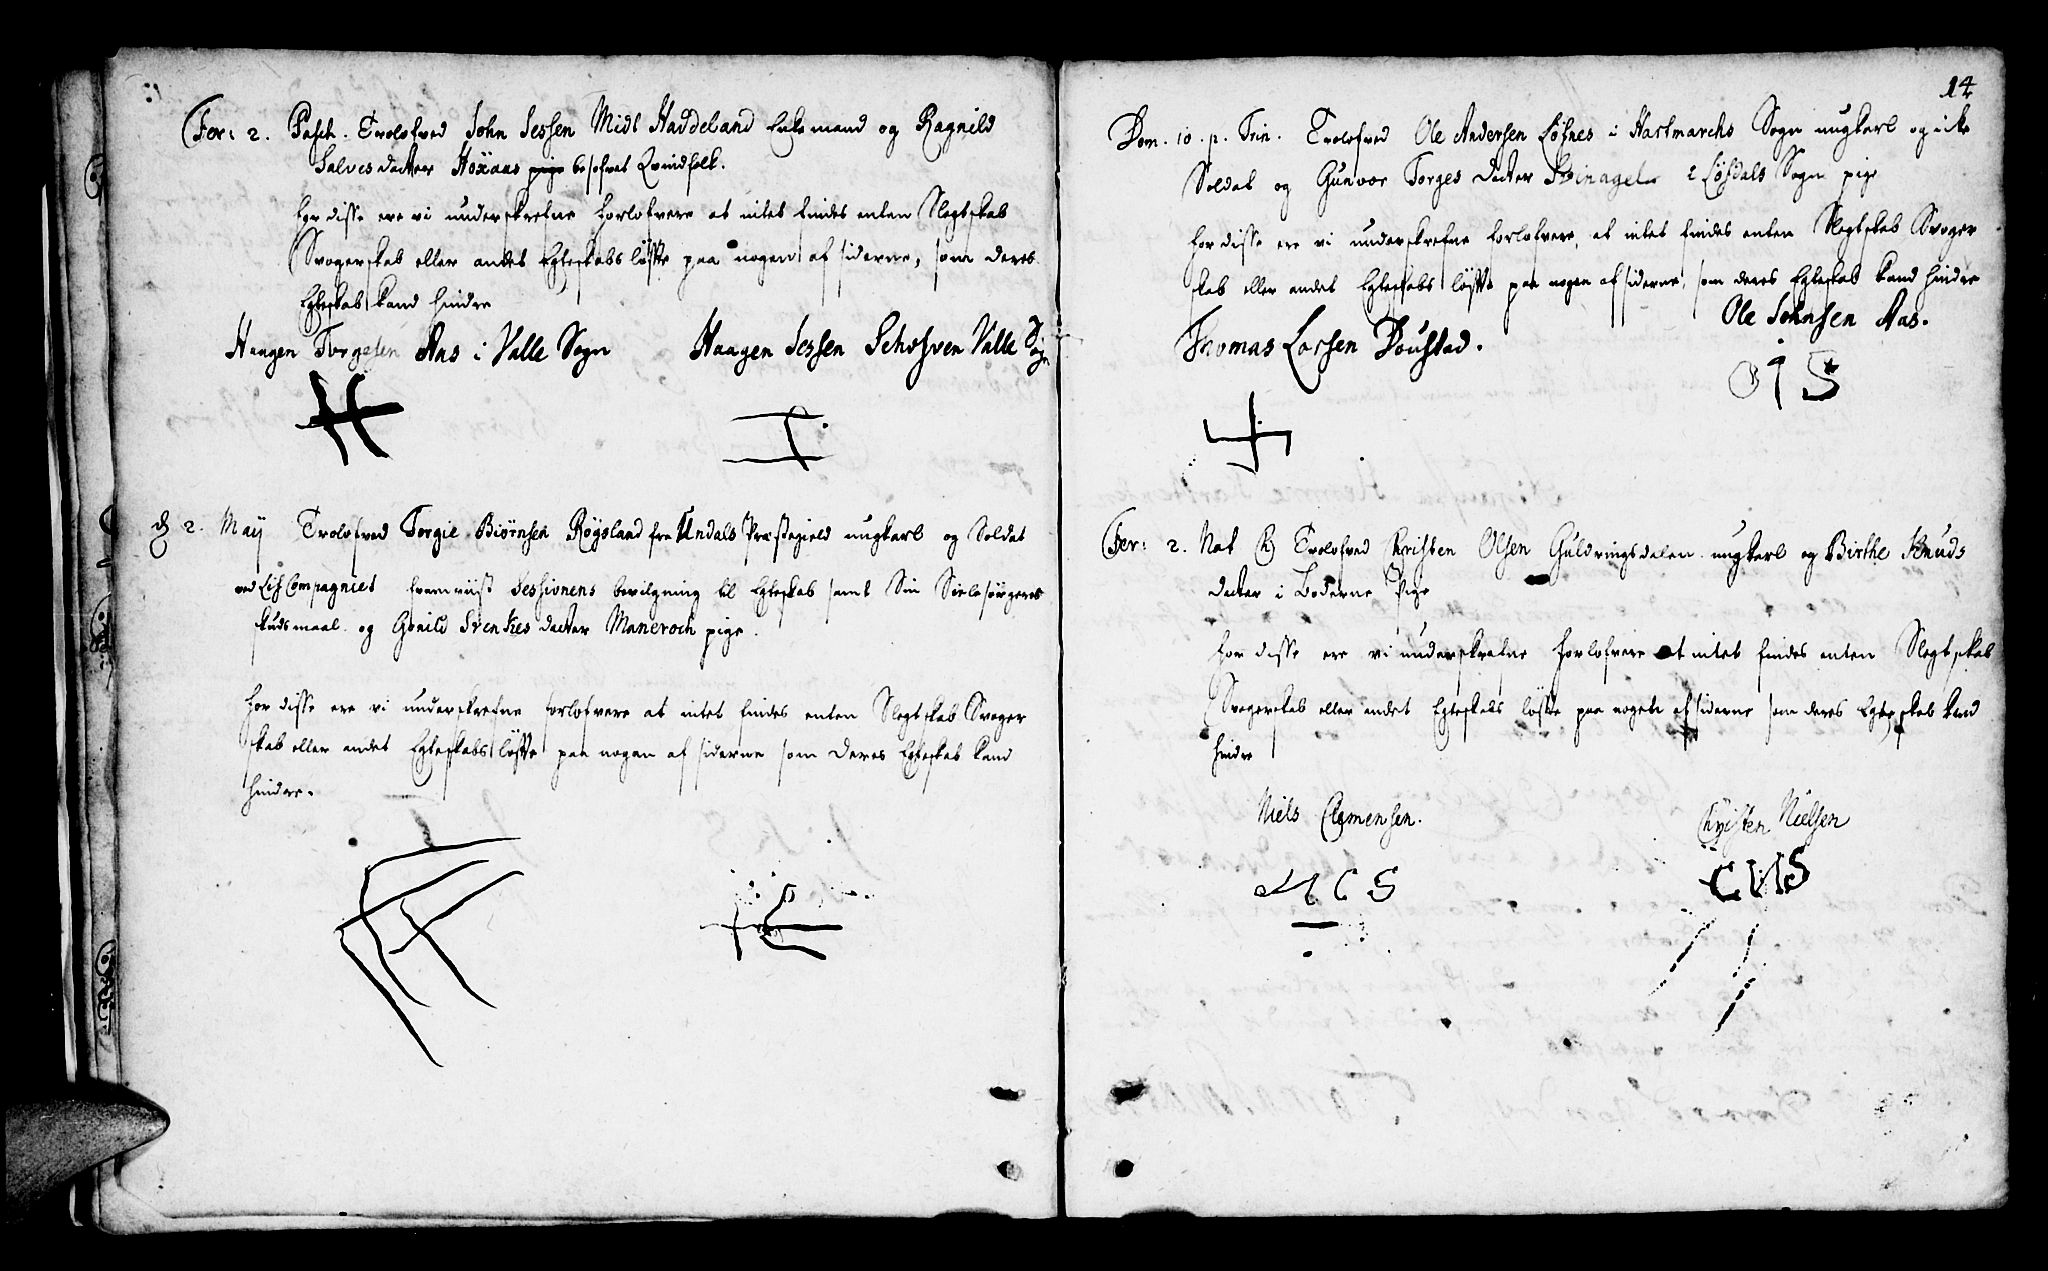 Fer: 2. Pasch. Trolofved John Jessen Midl Haddeland Enkemand og Ragnild
Salves dacter Höxaas pige besofvet Qvindfolk.
For disse ere vi underskrefne forlofvere at intet findes enten Slegtskab
Svogerskab eller andet Egteskabs løfte paa nogen af siderne, som deres
Egteskab kand hindre
Haagen Torgesen Aas i Valle Sogn
Haagen Jessen Valle Sogn
d 2. Maij Trolofved Torgie Biörnsen Röysland fra Undals Præstegield ungkarl og Soldat
ved Compagniet fremviist Sessionens bevilgning til Egteskab samt Sin Sielesörgeres
skudsmaal og Gunild Svenkes dacter Maneroch pige.
For disse ere vi underskrefne forlofvere at intet findes enten Slegtskab Svoger
skab eller andet Egteskabs løfte paa nogen af siderne som deres Egteskab kand
hindre.
14
Dom. 10. p. Trin. Trolofved Ole Andersen Löfnes i Hartmarchs Sogn ungkarl og icke
Soldat og Gunvor Torges dacter Sogn pige
For disse ere vi underskrefne forlofvere, at intet findes enten Slegtskab Svoger
skab eller andet Egteskabs løfte paa nogen af siderne, som deres Egteskab kand hindre
Thomas Larsen Doustad.
Ole Johnsen Aas.
O I S
Fer: 2. Nat Trolofved Christen Olsen Guldringsdalen ungkarl og Birthe Knuds
dacter i Boderne Pige
For disse ere vi underskrefne forlofvere at intet findes enten Slegtskab
Svogerskab eller andet Egteskabs løfte paa nogen af siderne som deres Egteskab kand
hindre
Niels Clemensen.
Christen Nielsen
N C S
C N S